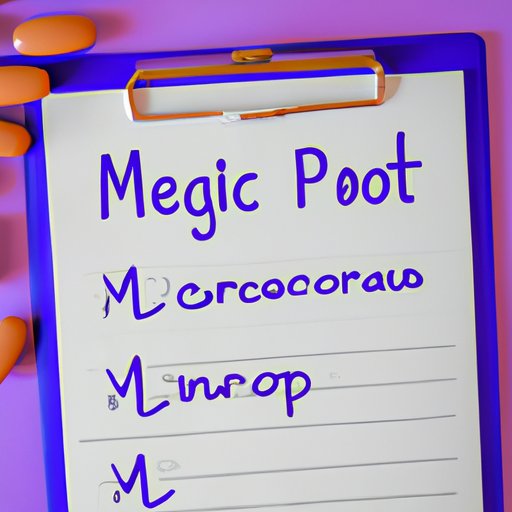 Megic Poot
M crocooraus
M inrop
M